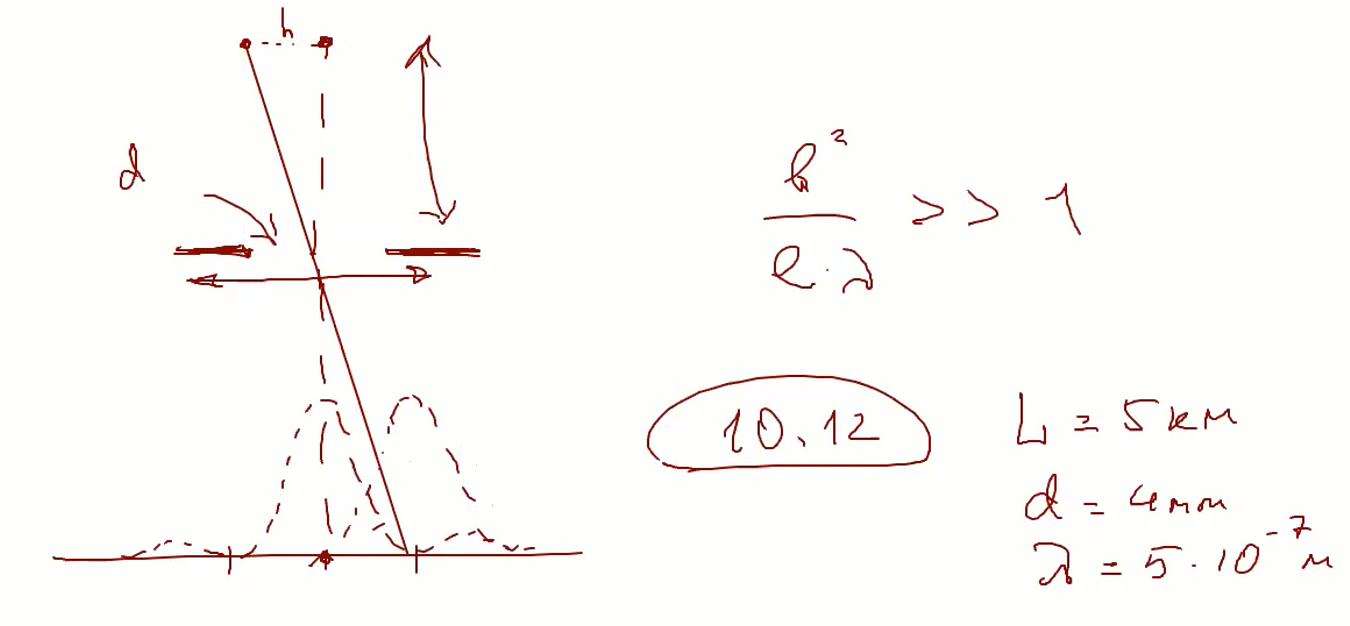 h
d
b²
ℓ·λ
>> 1
10.12
L = 5 км
d = 4 мм
λ = 5·10⁻⁷ м